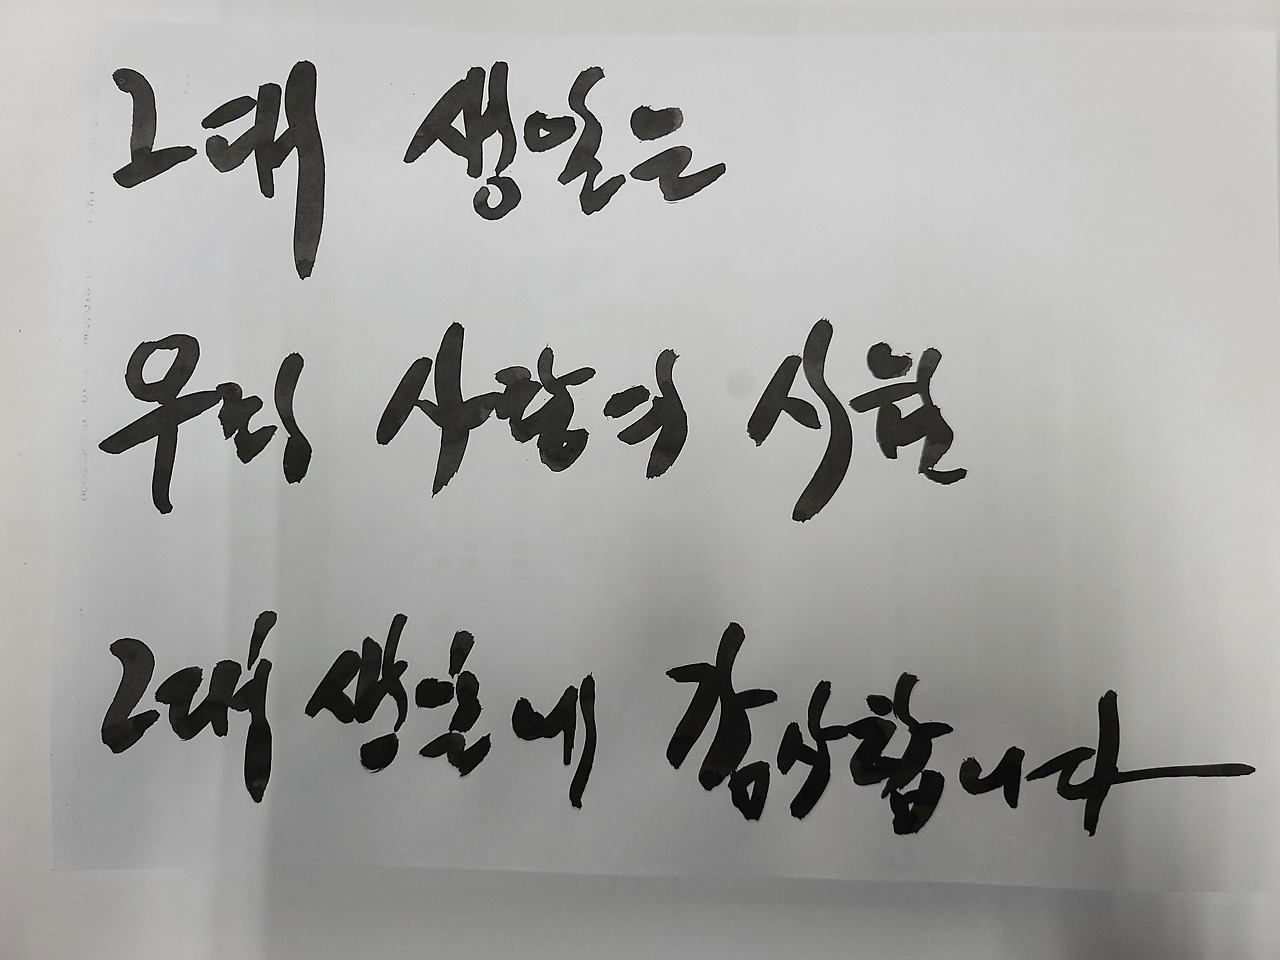 그대 생일은
우리 사랑의 시원
그대 생일에 감사합니다